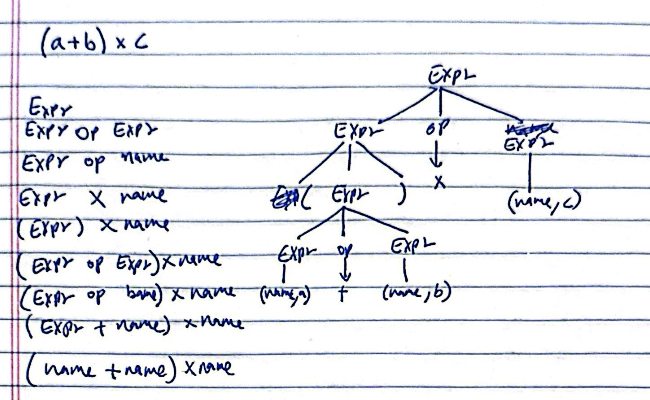 (a+b) x c
Expr
Expr op Expr
Expr op name
Expr x name
(Expr) x name
(Expr op Expr) x name
(Expr op bame) x name
(Expr + name) x name
(name + name) x name
Expr
Expr op Expr
( Expr ) x (name, c)
Expr op Expr
(name, a) + (name, b)